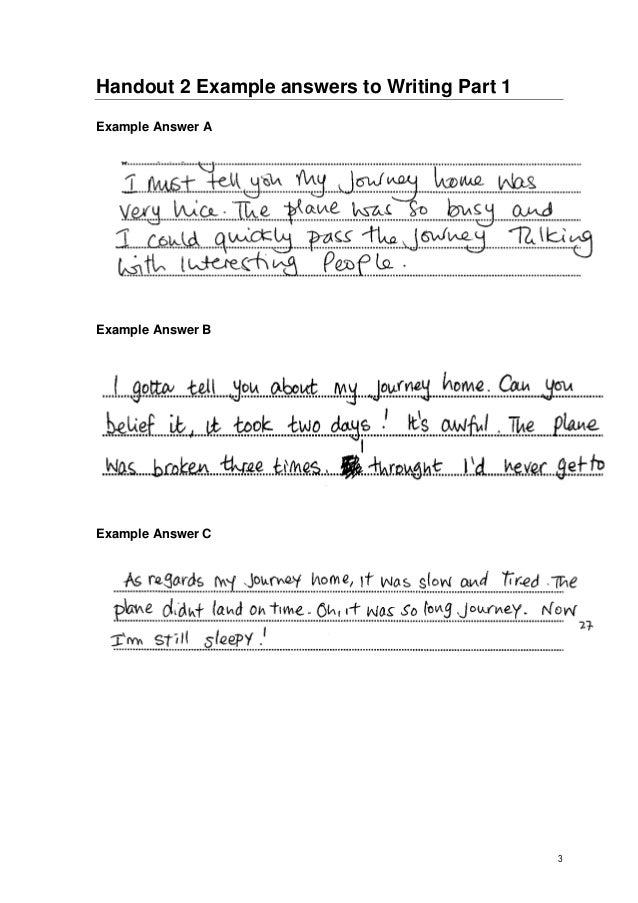 Handout 2 Example answers to Writing Part 1
Example Answer A
I must tell you my Journey home was
very nice. The plane was so busy and
I could quickly pass the Journey Talking
with Interesting People.
Example Answer B
I gotta tell you about my journey home. Can you
belief it, it took two days! It's awful. The plane
was broken three times. I throught I'd never get to
Example Answer C
As regards my Journey home, it was slow and Tired. The
plane didnt land on time. Oh, it was so long journey. Now
27
I'm still sleepy!
3